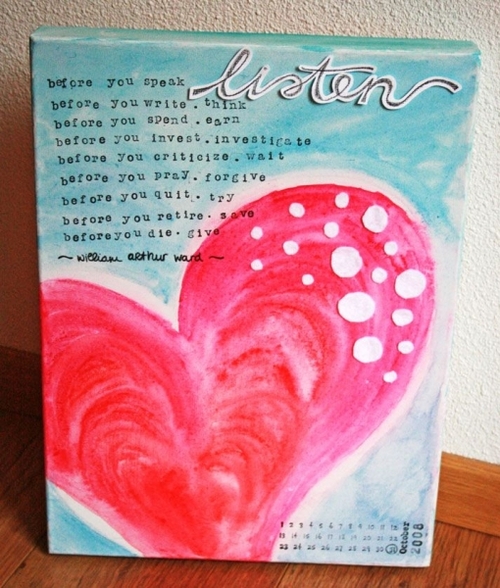 before you speak listen
before you write. think
before you spend. earn
before you invest. investigate
before you criticize. wait
before you pray. forgive
before you quit. try
before you retire. save
beforeyou die. give
~ william arthur ward ~
1 2 3 4 5 6 7 8 9 10 11 12
13 14 15 16 17 18 19 20 21 22
23 24 25 26 27 28 29 30 31
October
2008